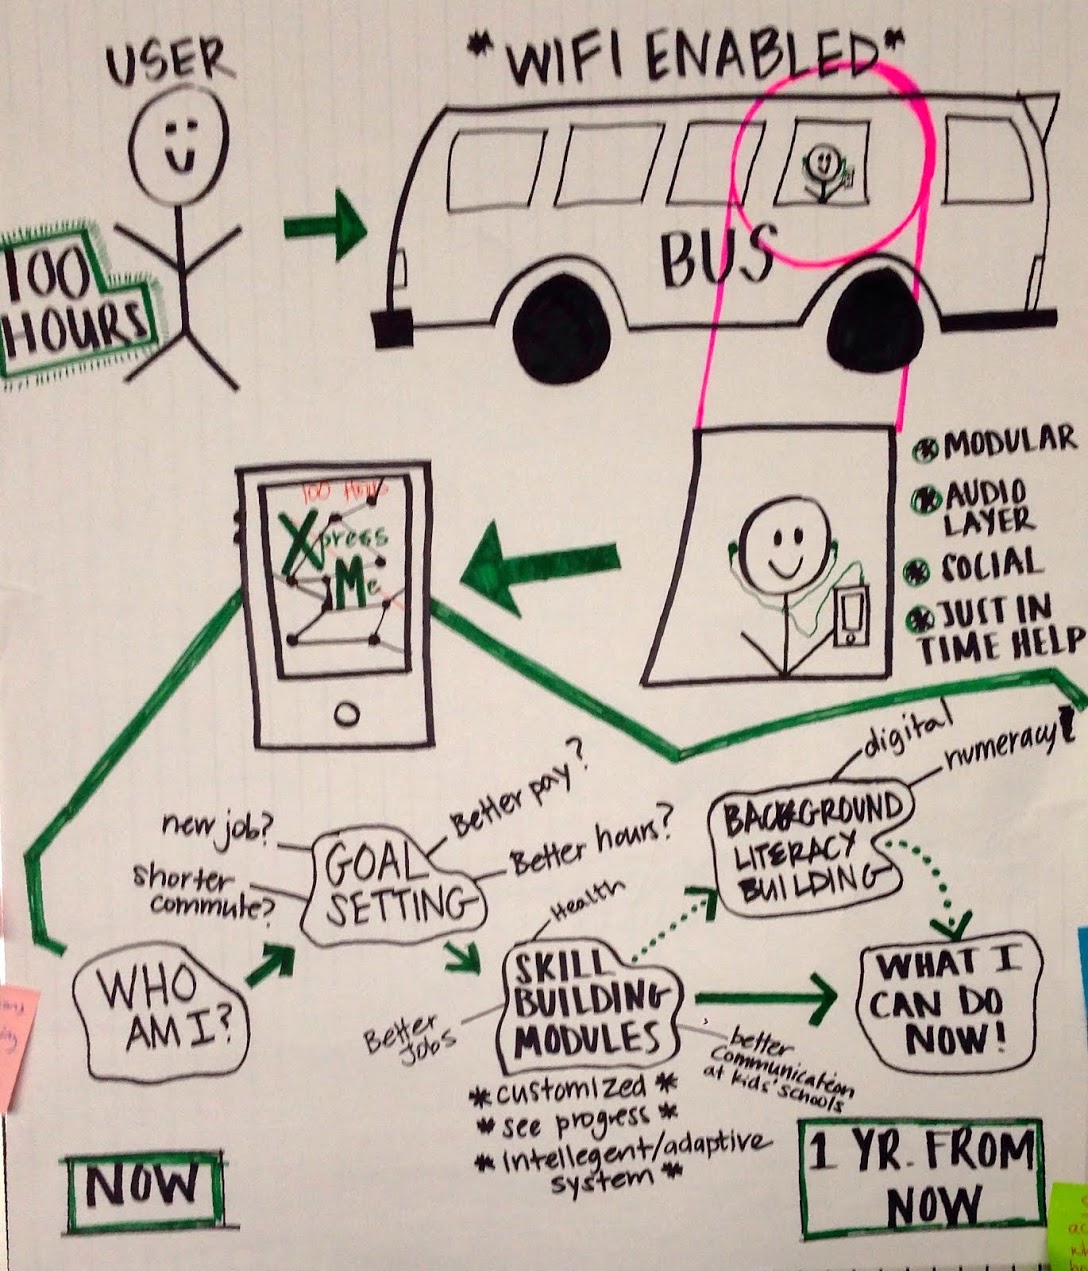 USER
*WIFI ENABLED*
100
HOURS
BUS
* MODULAR
* AUDIO
LAYER
* SOCIAL
* JUST IN
TIME HELP
100 Hours
Xpress
Me
digital
numeracy
new job?
Better pay?
shorter
commute?
Better hours?
GOAL
SETTING
BACKGROUND
LITERACY
BUILDING
Health
WHO
AM I?
SKILL
BUILDING
MODULES
WHAT I
CAN DO
NOW!
Better
Jobs
better
communication
at kids' schools
*customized*
*see progress*
*intellegent/adaptive
system*
NOW
1 YR. FROM
NOW